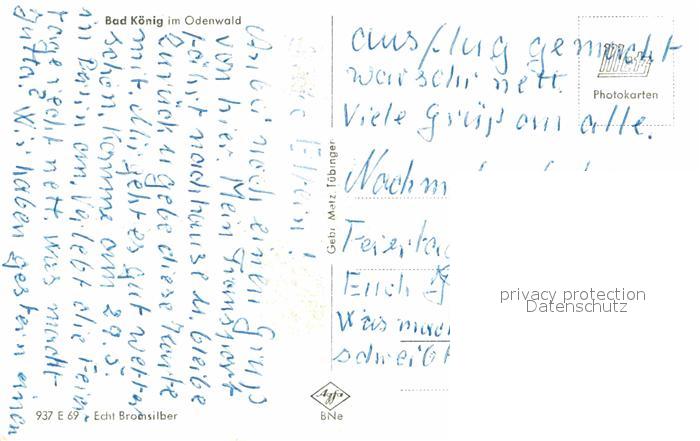 Bad König im Odenwald
Liebe Eltern!
Will Euch noch einen Gruß
von hier. Mein Transport
fährt nach hause u. bleibe
zurück u. gebe diese Karte
mit. Mir geht es gut, Wetter
schön. Komme am 29.5.
in an. Verlebt die Feier-
tage recht nett. Was macht
Jutta? Wir haben gestern einen
ausflug gemacht
war sehr nett.
Viele Grüße an alle.
Nachm
Feiertag
Erich
Was mach
schreibt
METZ
Photokarten
Gebr. Metz, Tübingen
privacy protection
Datenschutz
937 E 69 · Echt Bromsilber
Agfa
BNe